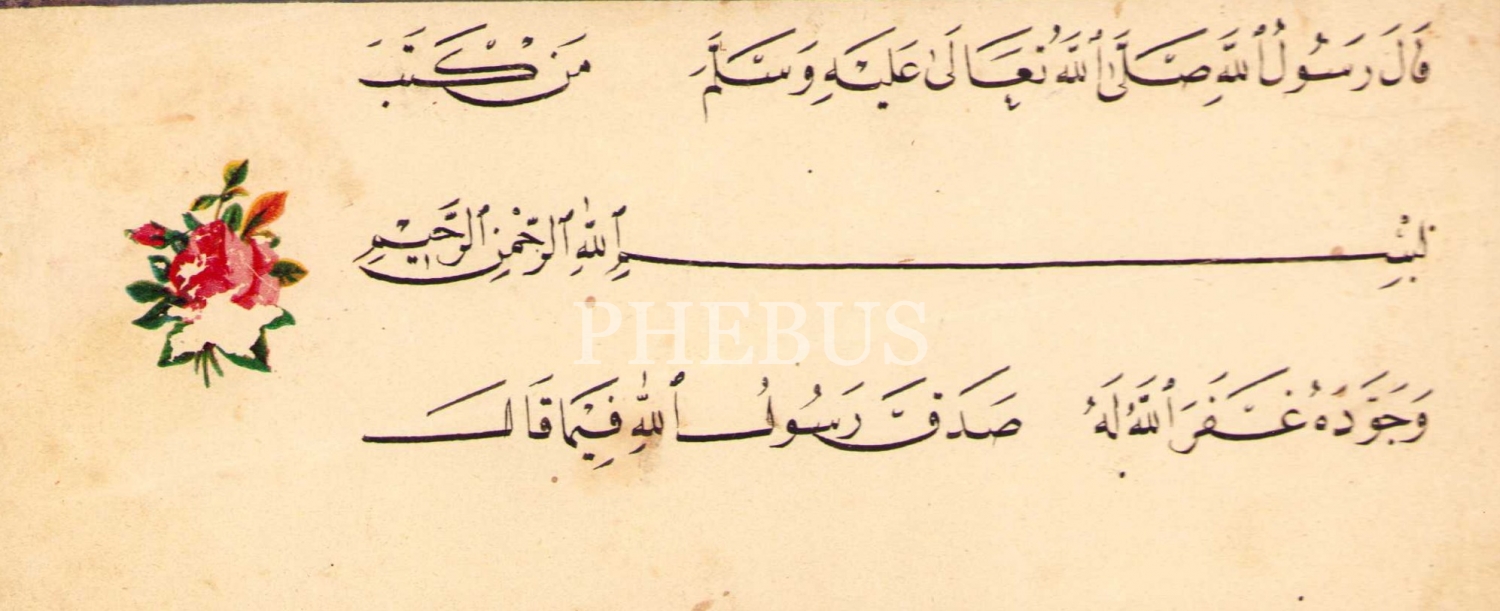 قَالَ رَسُولُ ٱللَّهِ صَلَّى ٱللَّهُ تَعَالَىٰ عَلَيْهِ وَسَلَّمَ مَنْ كَتَبَ
بِسْمِ ٱللّٰهِ ٱلرَّحْمٰنِ ٱلرَّحِيْمِ
PHEBUS
وَجَوَّدَهُ غَفَرَ ٱللَّهُ لَهُ صَدَقَ رَسُولُ ٱللّٰهِ فِيْمَا قَالَ